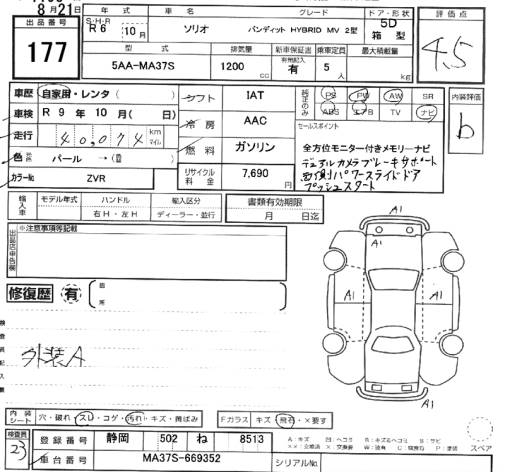 8月21日
出品番号
177
年式 車名 グレード ドア・形状
S・H・R
R6 10月 ソリオ バンディット HYBRID MV 2型 5D 箱型
型式 排気量 新車保証書 乗車定員 最大積載量
有無記入
5AA-MA37S 1200cc 有 5人 kg
評価点
4.5
車歴 自家用・レンタ( )
車検 R 9年 10月( 日)
走行 40,074 km マイル
色 パール →( )
カラーNo ZVR
シフト IAT
冷房 AAC
燃料 ガソリン
リサイクル料金 7,690円
純正のみ PS PW AW SR
ABS エアB TV ナビ
セールスポイント
全方位モニター付きメモリーナビ
デュアルカメラブレーキサポート
両側パワースライドドア
プッシュスタート
内装評価
b
輸入車 モデル年式 ハンドル 輸入区分
右H・左H ディーラー・並行
書類有効期限
月 日迄
※注意事項等記載
修復歴 有 箇所
外装A
A1
A1
A1
A1
A1
内装シート 穴・破れ・スレ・コゲ・汚れ・キズ・黄ばみ
Fガラス キズ・飛石・×要す
検査員
23
登録番号 静岡 502 ね 8513
車台番号 MA37S-669352
シリアルNo.
スペア